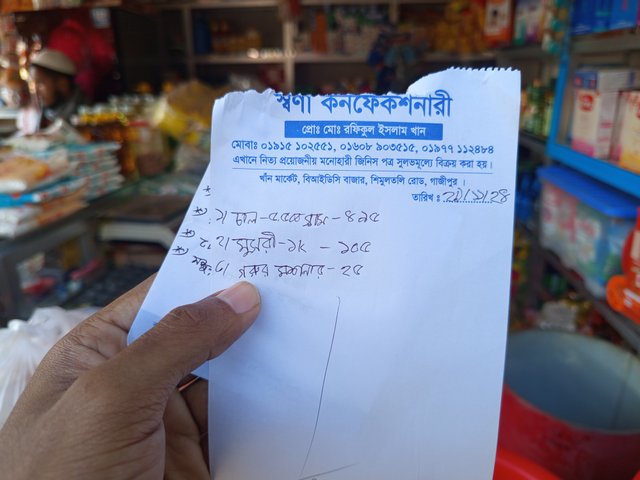 স্বর্ণা কনফেকশনারী
প্রোঃ মোঃ রফিকুল ইসলাম খান
মোবাঃ ০১৯১৫ ১০২৫৫১, ০১৬০৮ ৯০৩৫১৫, ০১৯৭৭ ১১২৪৮৪
এখানে নিত্য প্রয়োজনীয় মনোহারী জিনিস পত্র সুলভমূল্যে বিক্রয় করা হয়।
খাঁন মার্কেট, বিআইডিসি বাজার, শিমুলতলি রোড, গাজীপুর।
তারিখ :
১/ চাল-৫৫৫
২/ মুসরী-১k - ১০৫
৩/ গরুর মশলার-২৫